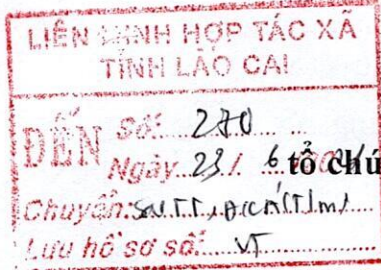 LIÊN MINH HỢP TÁC XÃ
TỈNH LÀO CAI
ĐẾN Số: 270
Ngày 23 / 6
tổ chú
Chuyển:
Lưu hồ sơ số: VT